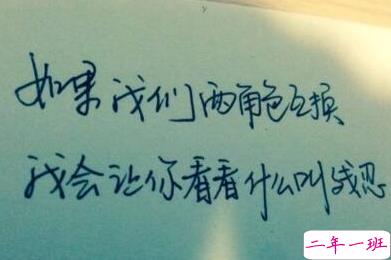 如果我们两角色互换
我会让你看看什么叫残忍
二年一班